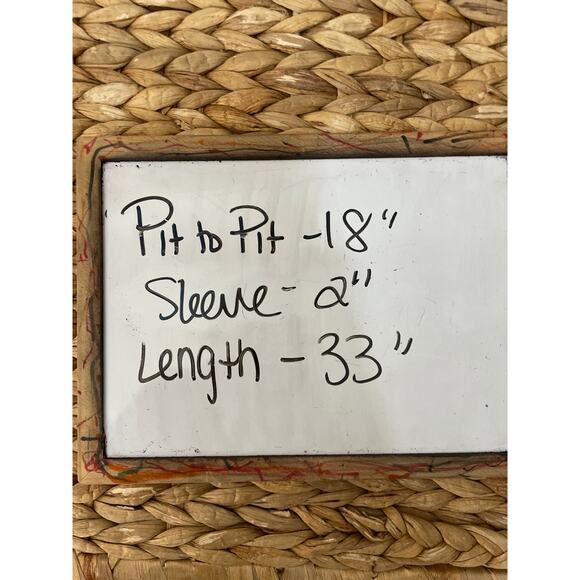 Pit to Pit - 18"
Sleeve - 2"
Length - 33"